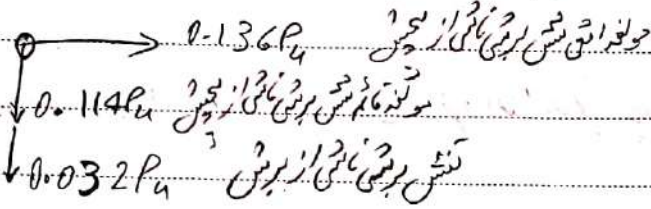 0.136Pu مولفه افقی تنش برشی ناشی از پیچش
0.114Pu مولفه قائم تنش برشی ناشی از پیچش
0.032Pu تنش برشی ناشی از برش